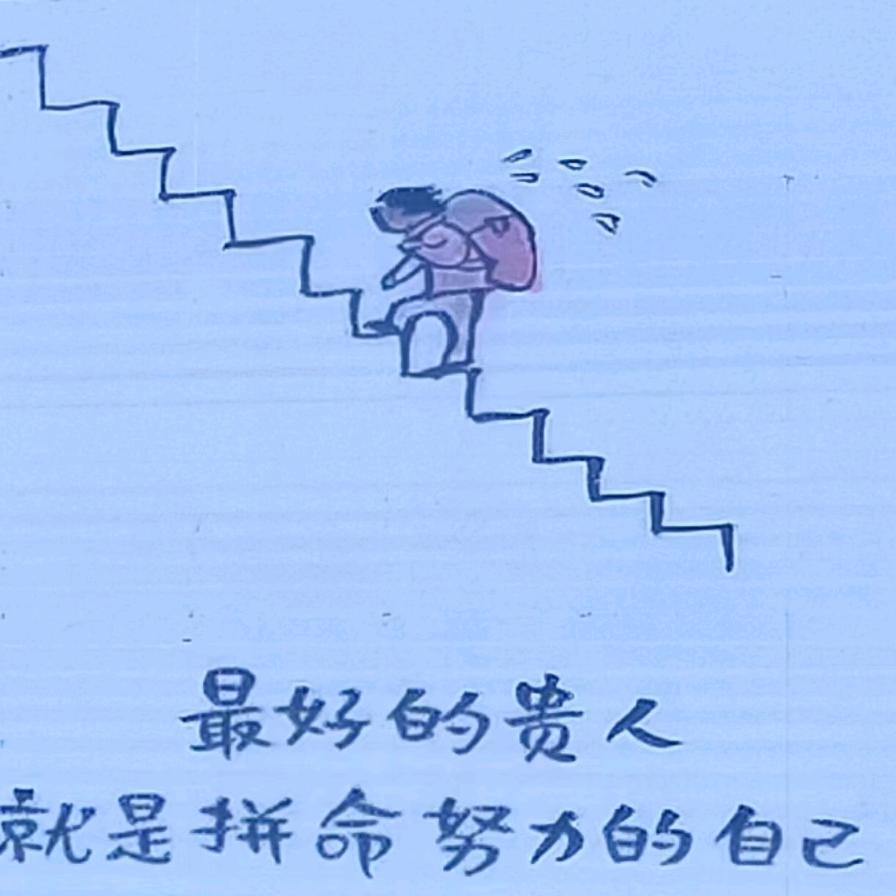 最好的贵人
就是拼命努力的自己